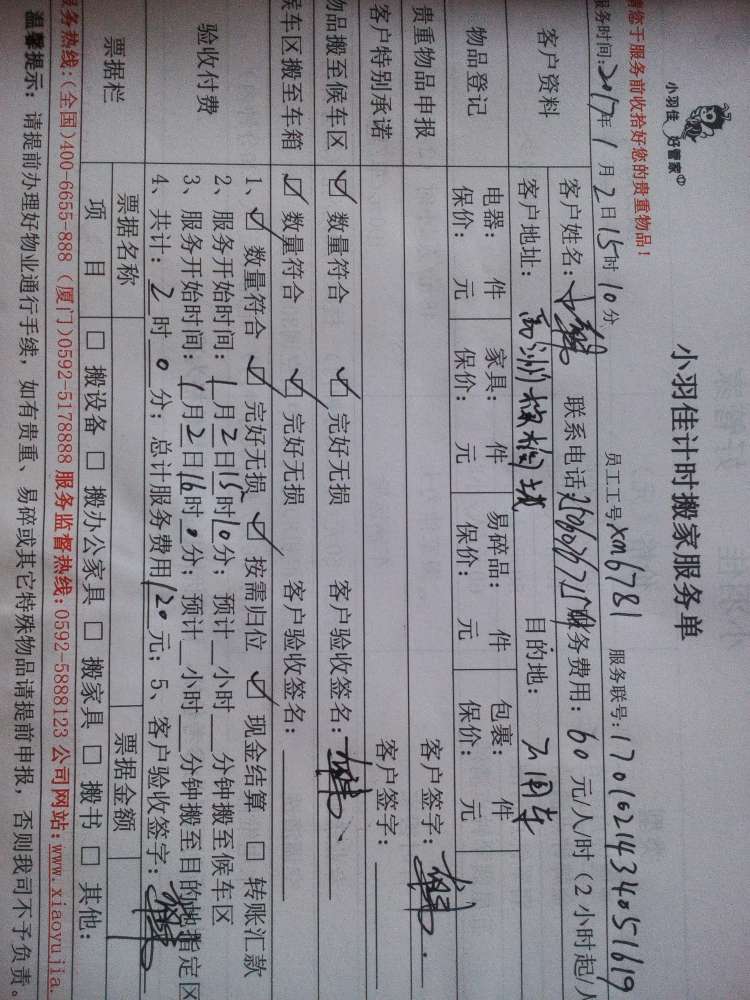 小羽佳 好管家
小羽佳计时搬家服务单
请您于服务前收拾好您的贵重物品！
员工工号xm6781 服务联号:
服务时间:2017年1月2日15时10分
客户资料
客户姓名: 联系电话 服务费用: 60元/人/时(2小时起/人
客户地址: 目的地:
物品登记
电器: 件 家具: 件 易碎品: 件 包裹: 件
保价: 元 保价: 元 保价: 元 保价: 元
贵重物品申报 客户签字:
客户特别承诺 客户签字:
物品搬至候车区 ☑ 数量符合 ☑ 完好无损 客户验收签名:
候车区搬至车箱 ☑ 数量符合 ☑ 完好无损 客户验收签名:
验收付费
1、☑ 数量符合 ☑ 完好无损 ☑ 按需归位 ☑ 现金结算 □ 转账汇款
2、服务开始时间:1月2日15时10分; 预计__小时__分钟搬至候车区
3、服务开始时间:1月2日16时0分; 预计__小时__分钟搬至目的地指定区
4、共计:2时0分; 总计服务费用120元; 5、客户验收签字:
票据栏
票据名称 票据金额
项 目 □ 搬设备 □ 搬办公家具 □ 搬家具 □ 搬书 □ 其他:
服务热线:(全国)400-6655-888 (厦门)0592-5178888 服务监督热线:0592-5888123 公司网站:www.xiaoyujia.
温馨提示: 请提前办理好物业通行手续, 如有贵重、易碎或其它特殊物品请提前申报, 否则我司不予负责。